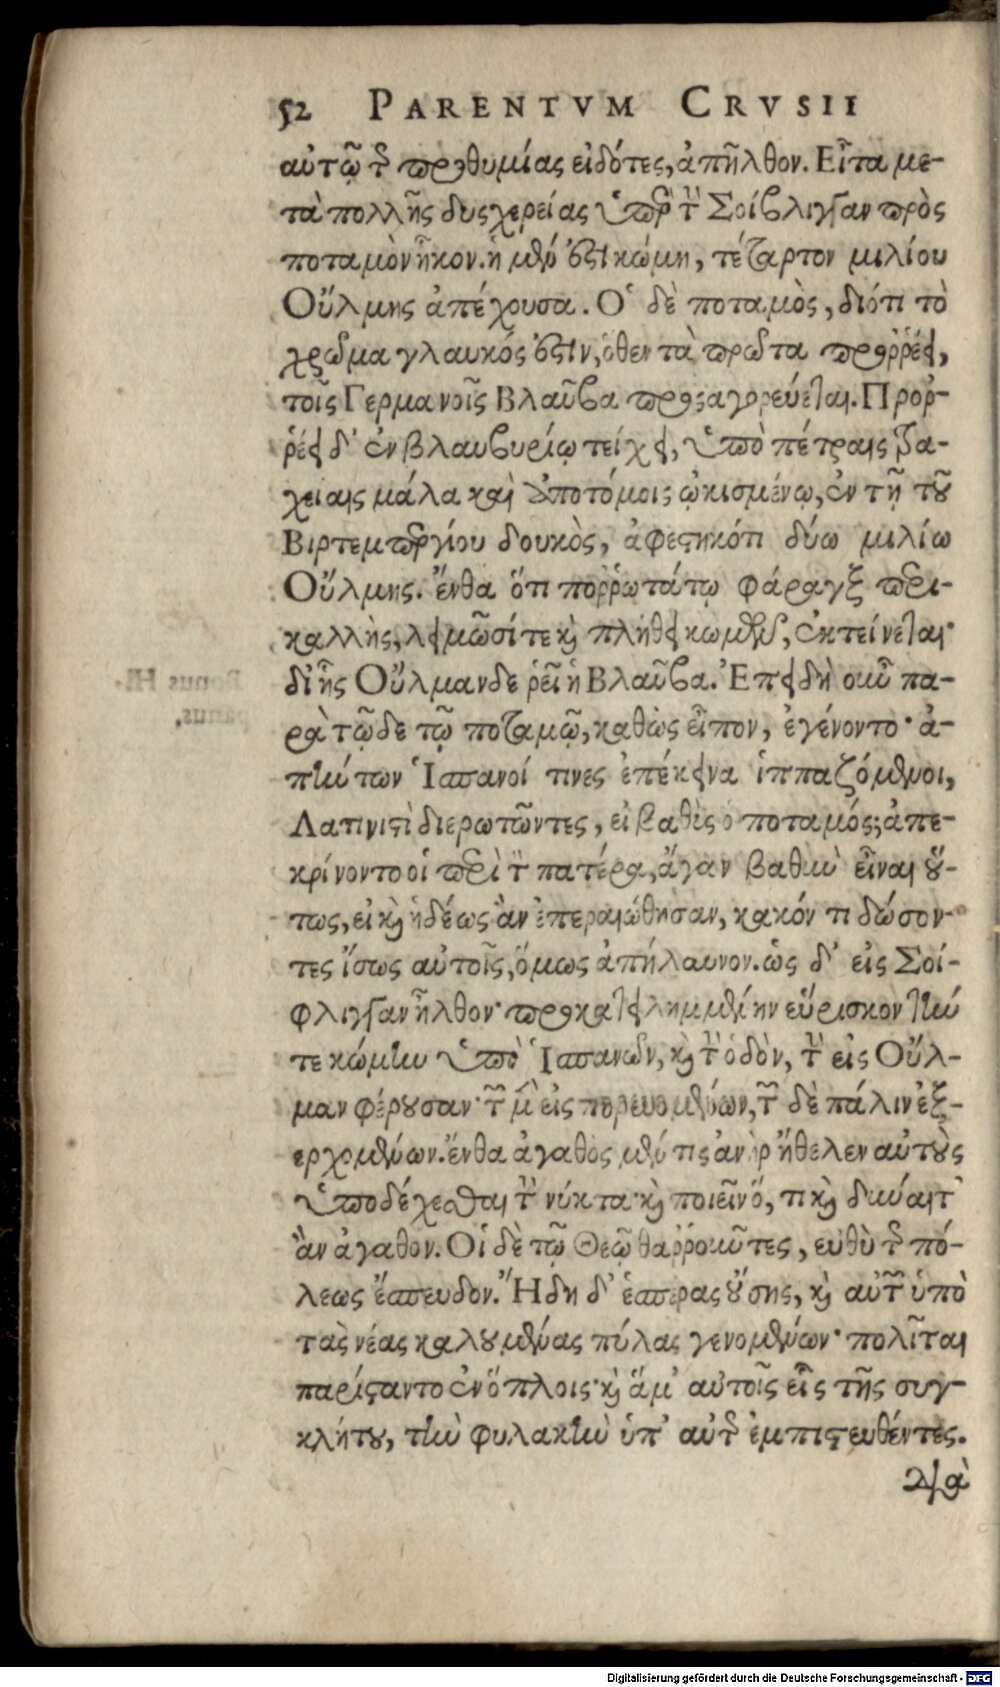 52 PARENTVM CRVSII
αὐτῷ τῆς προθυμίας εἰδότες, ἀπῆλθον. Εἶτα με-
τὰ πολλῆς δυςχερείας ὑπὲρ τὴν Σοίβλιγγαν πρὸς
ποταμὸν ἧκον. ἡ μὲν ἐστι κώμη, τέταρτον μιλίου
Οὔλμης ἀπέχουσα. Ὁ δὲ ποταμὸς, διότι τὸ
χρῶμα γλαυκός ἐστιν, ὅθεν τὰ πρῶτα προῤῥέει,
τοῖς Γερμανοῖς Βλαῦβα προςαγορεύεται. Προῤ-
ῥέει δ' ἐν βλαυβυρίῳ τείχει, ὑπὸ πέτραις τρα-
χείαις μάλα καὶ ἀποτόμοις ᾠκισμένῳ, ἐν τῇ τοῦ
Βιρτεμπεργίου δουκὸς, ἀφεστηκότι δύω μιλίω
Οὔλμης. ἔνθα ὅτι ποῤῥωτάτῳ φάραγξ περι-
καλλὴς, λειμῶσί τε καὶ πλήθει κωμῶν, ἐκτείνεται·
δι' ἧς Οὔλμανδε ῥεῖ ἡ Βλαῦβα. Ἐπειδὴ οὖν πα-
ρὰ τῷδε τῷ ποταμῷ, καθὼς εἶπον, ἐγένοντο· ἀ-
πήντων Ἱσπανοί τινες ἐπέκεινα ἱππαζόμενοι,
Λατινιστὶ διερωτῶντες, εἰ βαθὺς ὁ ποταμός; ἀπε-
κρίνοντο οἱ περὶ τὸν πατέρα, ἄγαν βαθὺν εἶναι οὕ-
τως, εἰ καὶ ἡδέως ἂν ἐπεραιώθησαν, κακόν τι δώσον-
τες ἴσως αὐτοῖς, ὅμως ἀπήλαυνον. ὡς δ' εἰς Σοί-
φλιγγαν ἦλθον· προκατειλημμένην εὕρισκον τήν
τε κώμην ὑπὸ Ἱσπανῶν, καὶ τὴν ὁδὸν, τὴν εἰς Οὔλ-
μαν φέρουσαν· τῶν μὲν εἰςπορευομένων, τῶν δὲ πάλιν ἐξ-
ερχομένων. ἔνθα ἀγαθὸς μέν τις ἀνὴρ ἤθελεν αὐτοὺς
ὑποδέχεσθαι τὴν νύκτα· καὶ ποιεῖν ὅ, τι καὶ δύναιτ'
ἂν ἀγαθόν. Οἱ δὲ τῷ Θεῷ θαῤῥοῦντες, εὐθὺ τῆς πό-
λεως ἔσπευδον. Ἤδη δ' ἑσπέρας οὔσης, καὶ αὐτῶν ὑπὸ
τὰς νέας καλουμένας πύλας γενομένων· πολῖται
παρίσταντο ἐν ὅπλοις· καὶ ἅμ' αὐτοῖς εἷς τῆς συγ-
κλήτου, τὴν φυλακὴν ὑπ' αὐτῆς ἐμπιστευθέντες.